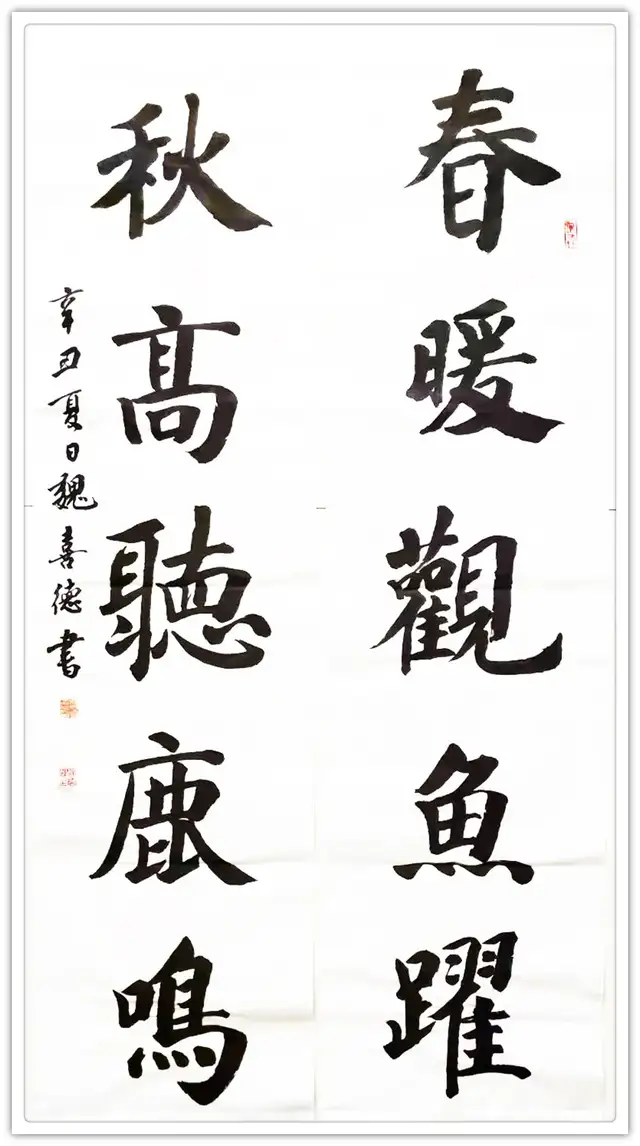 春暖觀魚躍
秋高聽鹿鳴
辛丑夏日魏喜德書